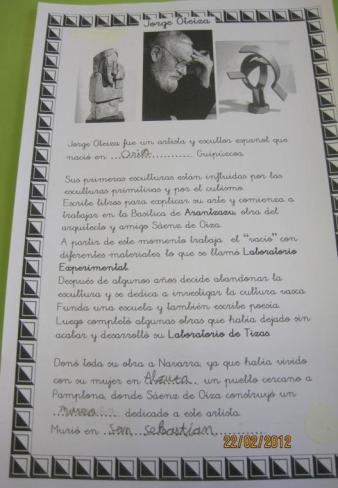 Jorge Oteiza
Jorge Oteiza fue un artista y escultor español que
nació en ...Orio............ Guipúzcoa.
Sus primeras esculturas están influidas por las
esculturas primitivas y por el cubismo.
Escribe libros para explicar su arte y comienza a
trabajar en la Basílica de Arantzazu, obra del
arquitecto y amigo Sáenz de Oiza.
A partir de este momento trabaja el "vacío" con
diferentes materiales lo que se llamó Laboratorio
Experimental.
Después de algunos años decide abandonar la
escultura y se dedica a investigar la cultura vasca.
Funda una escuela y también escribe poesía.
Luego completó algunas obras que había dejado sin
acabar y desarrolló su Laboratorio de Tizas.
Donó toda su obra a Navarra, ya que había vivido
con su mujer en Alzuza, un pueblo cercano a
Pamplona, donde Sáenz de Oiza construyó un
museo dedicado a este artista.
Murió en san sebastian
22/02/2012